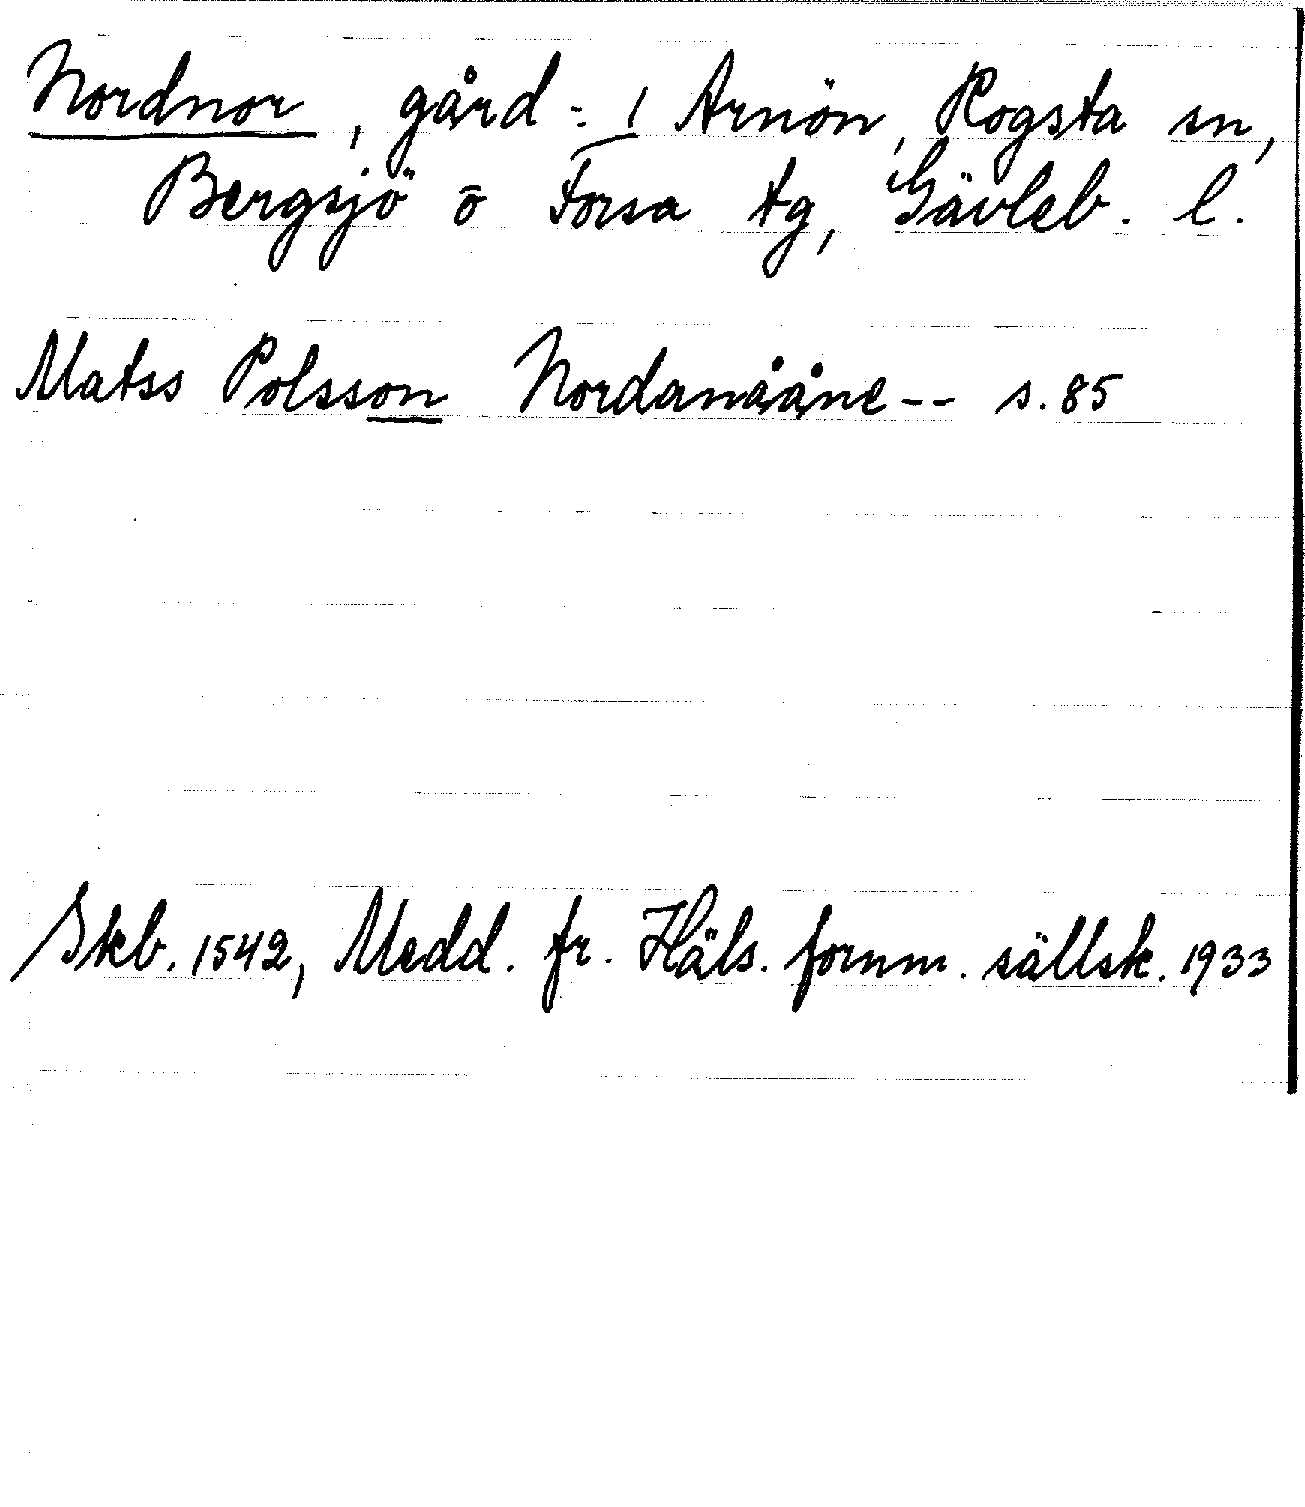 Nordnor, gård: 1 Arnön, Rogsta sn,
Bergsjö o Forsa tg, Gävleb. l.
Matss Polsson Nordanååne -- s. 85
Skb. 1542, Medd. fr. Häls. fornm. sällsk. 1933